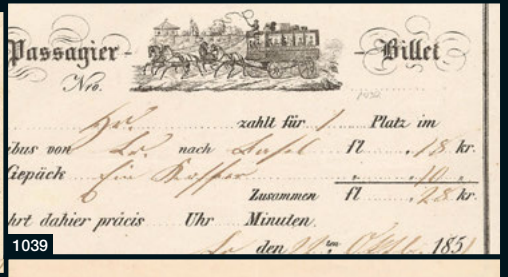 Passagier- -Billet
Nro.
Hr. zahlt für 1 Platz im
ibus von nach Basel fl 18 kr.
Giepäck Ein Koffer " 10 "
Zusammen fl 28 kr.
hrt dahier präcis Uhr Minuten.
den ten 1851
1039